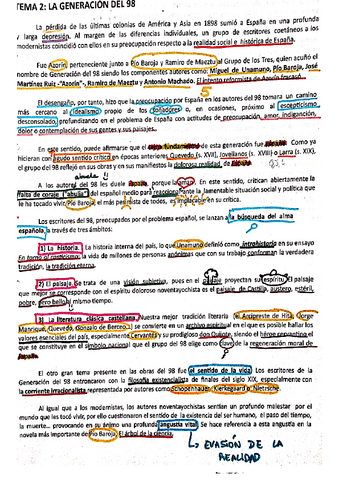 TEMA 2: LA GENERACIÓN DEL 98
La pérdida de las últimas colonias de América y Asia en 1898 sumió a España en una profunda
y larga depresión. Al margen de las diferencias individuales, un grupo de escritores coetáneos a los
modernistas coincidió con ellos en su preocupación respecto a la realidad social e histórica de España.
Fue Azorín, perteneciente junto a Pío Baroja y Ramiro de Maeztu al Grupo de los Tres, quien acuñó el
nombre de Generación del 98 siendo los componentes autores como: Miguel de Unamuno, Pío Baroja, José
Martínez Ruiz -"Azorín"-, Ramiro de Maeztu y Antonio Machado. El intento reformista de Azorín fracasó.
5
El desengaño, por tanto, hizo que la preocupación por España en los autores del 98 tomara un camino
más cercano al idealismo propio de los soñadores o, en ocasiones, próximo al escepticismo
desconsolado, profundizando en el problema de España con actitudes de preocupación, amor, indignación,
dolor o contemplación de sus gentes y sus paisajes.
En este sentido, puede afirmarse que el tema fundamental de esta generación fue España. Como ya
hicieran con agudo sentido crítico en épocas anteriores Quevedo (s. XVII), Jovellanos (s. XVIII) o Larra (s. XIX),
el grupo del 98 reflejó en sus obras y en sus manifiestos la dolorosa realidad de España.
A los autores del 98 les duele España, porque la aman. En este sentido, critican abiertamente la
falta de coraje ("abulia") del español medio para reaccionar ante la lamentable situación social y política que
le ha tocado vivir. Pío Baroja, el más pesimista de todos, es implacable en su crítica.
Los escritores del 98, preocupados por el problema español, se lanzan a la búsqueda del alma
española, a través de tres ámbitos:
1) La historia. La historia interna del país, lo que Unamuno definió como intrahistoria en su ensayo
En torno al casticismo: la vida de millones de personas anónimas que con su trabajo conforman la verdadera
tradición, la tradición eterna.
2) El paisaje. Se trata de una visión subjetiva, pues en el paisaje proyectan su espíritu. El paisaje
que mejor se corresponde con el espíritu doloroso noventayochista es el paisaje de Castilla, austero, estéril,
pobre, pero bello al mismo tiempo.
3) La literatura clásica castellana. Nuestra mejor tradición literaria (el Arcipreste de Hita, Jorge
Manrique, Quevedo, Gonzalo de Berceo...) se convierte en un archivo espiritual en el que es posible hallar los
valores esenciales del país, especialmente Cervantes y su prodigioso don Quijote, siendo el héroe
que se constituye en el símbolo nacional que el grupo del 98 elige como clave de la regeneración moral de
España.
El otro gran tema presente en las obras del 98 fue el sentido de la vida. Los escritores de la
Generación del 98 entroncaron con la filosofía existencialista de finales del siglo XIX, especialmente con
la corriente irracionalista representada por autores como Schopenhauer, Kierkegaard o Nietzsche.
Al igual que a los modernistas, los autores noventayochistas sentían un profundo malestar por el
mundo que les tocó vivir, por ello cuestionaron el sentido de la existencia del ser humano, el paso del tiempo,
la muerte... provocando en su ánimo una profunda angustia vital. Se hace referencia a esta angustia en la
novela más importante de Pío Baroja, El árbol de la ciencia.
↳ EVASIÓN DE LA
REALIDAD